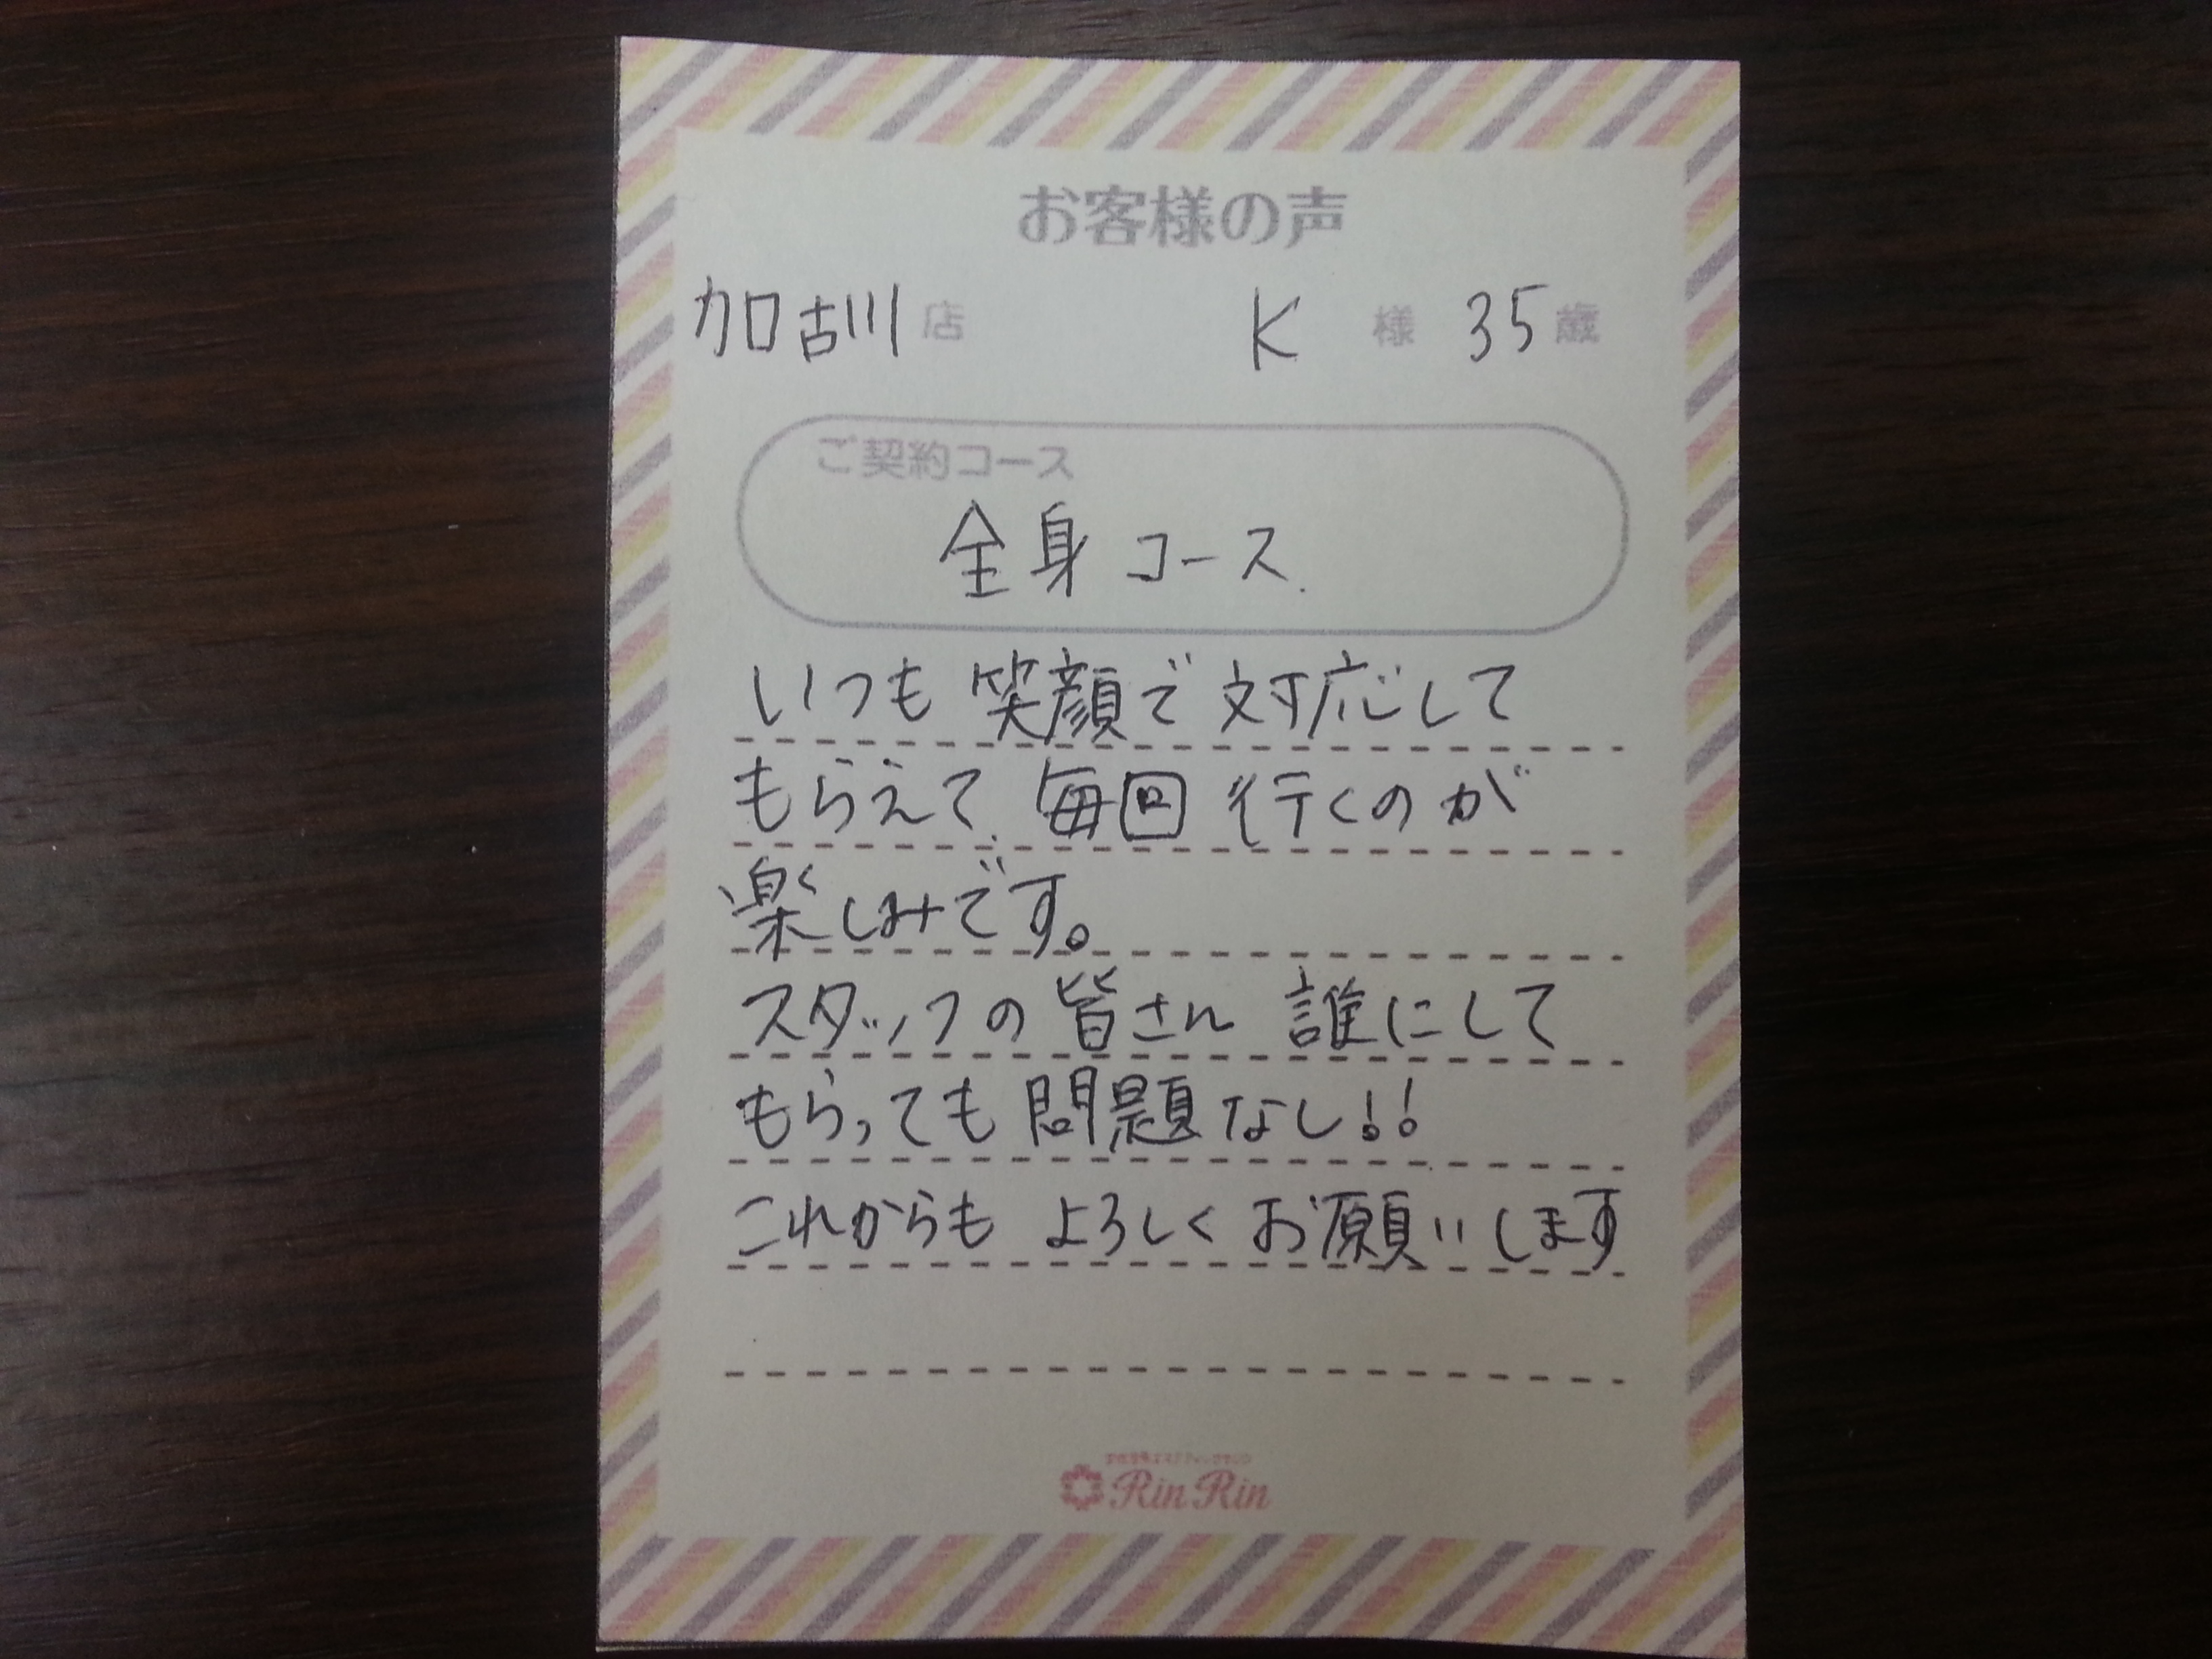 お客様の声
加古川店 K様 35歳
ご契約コース
全身コース.
いつも笑顔で対応して
もらえて、毎回行くのが
楽しみです。
スタッフの皆さん 誰にして
もらっても問題なし!!
これからも よろしくお願いします
RinRin